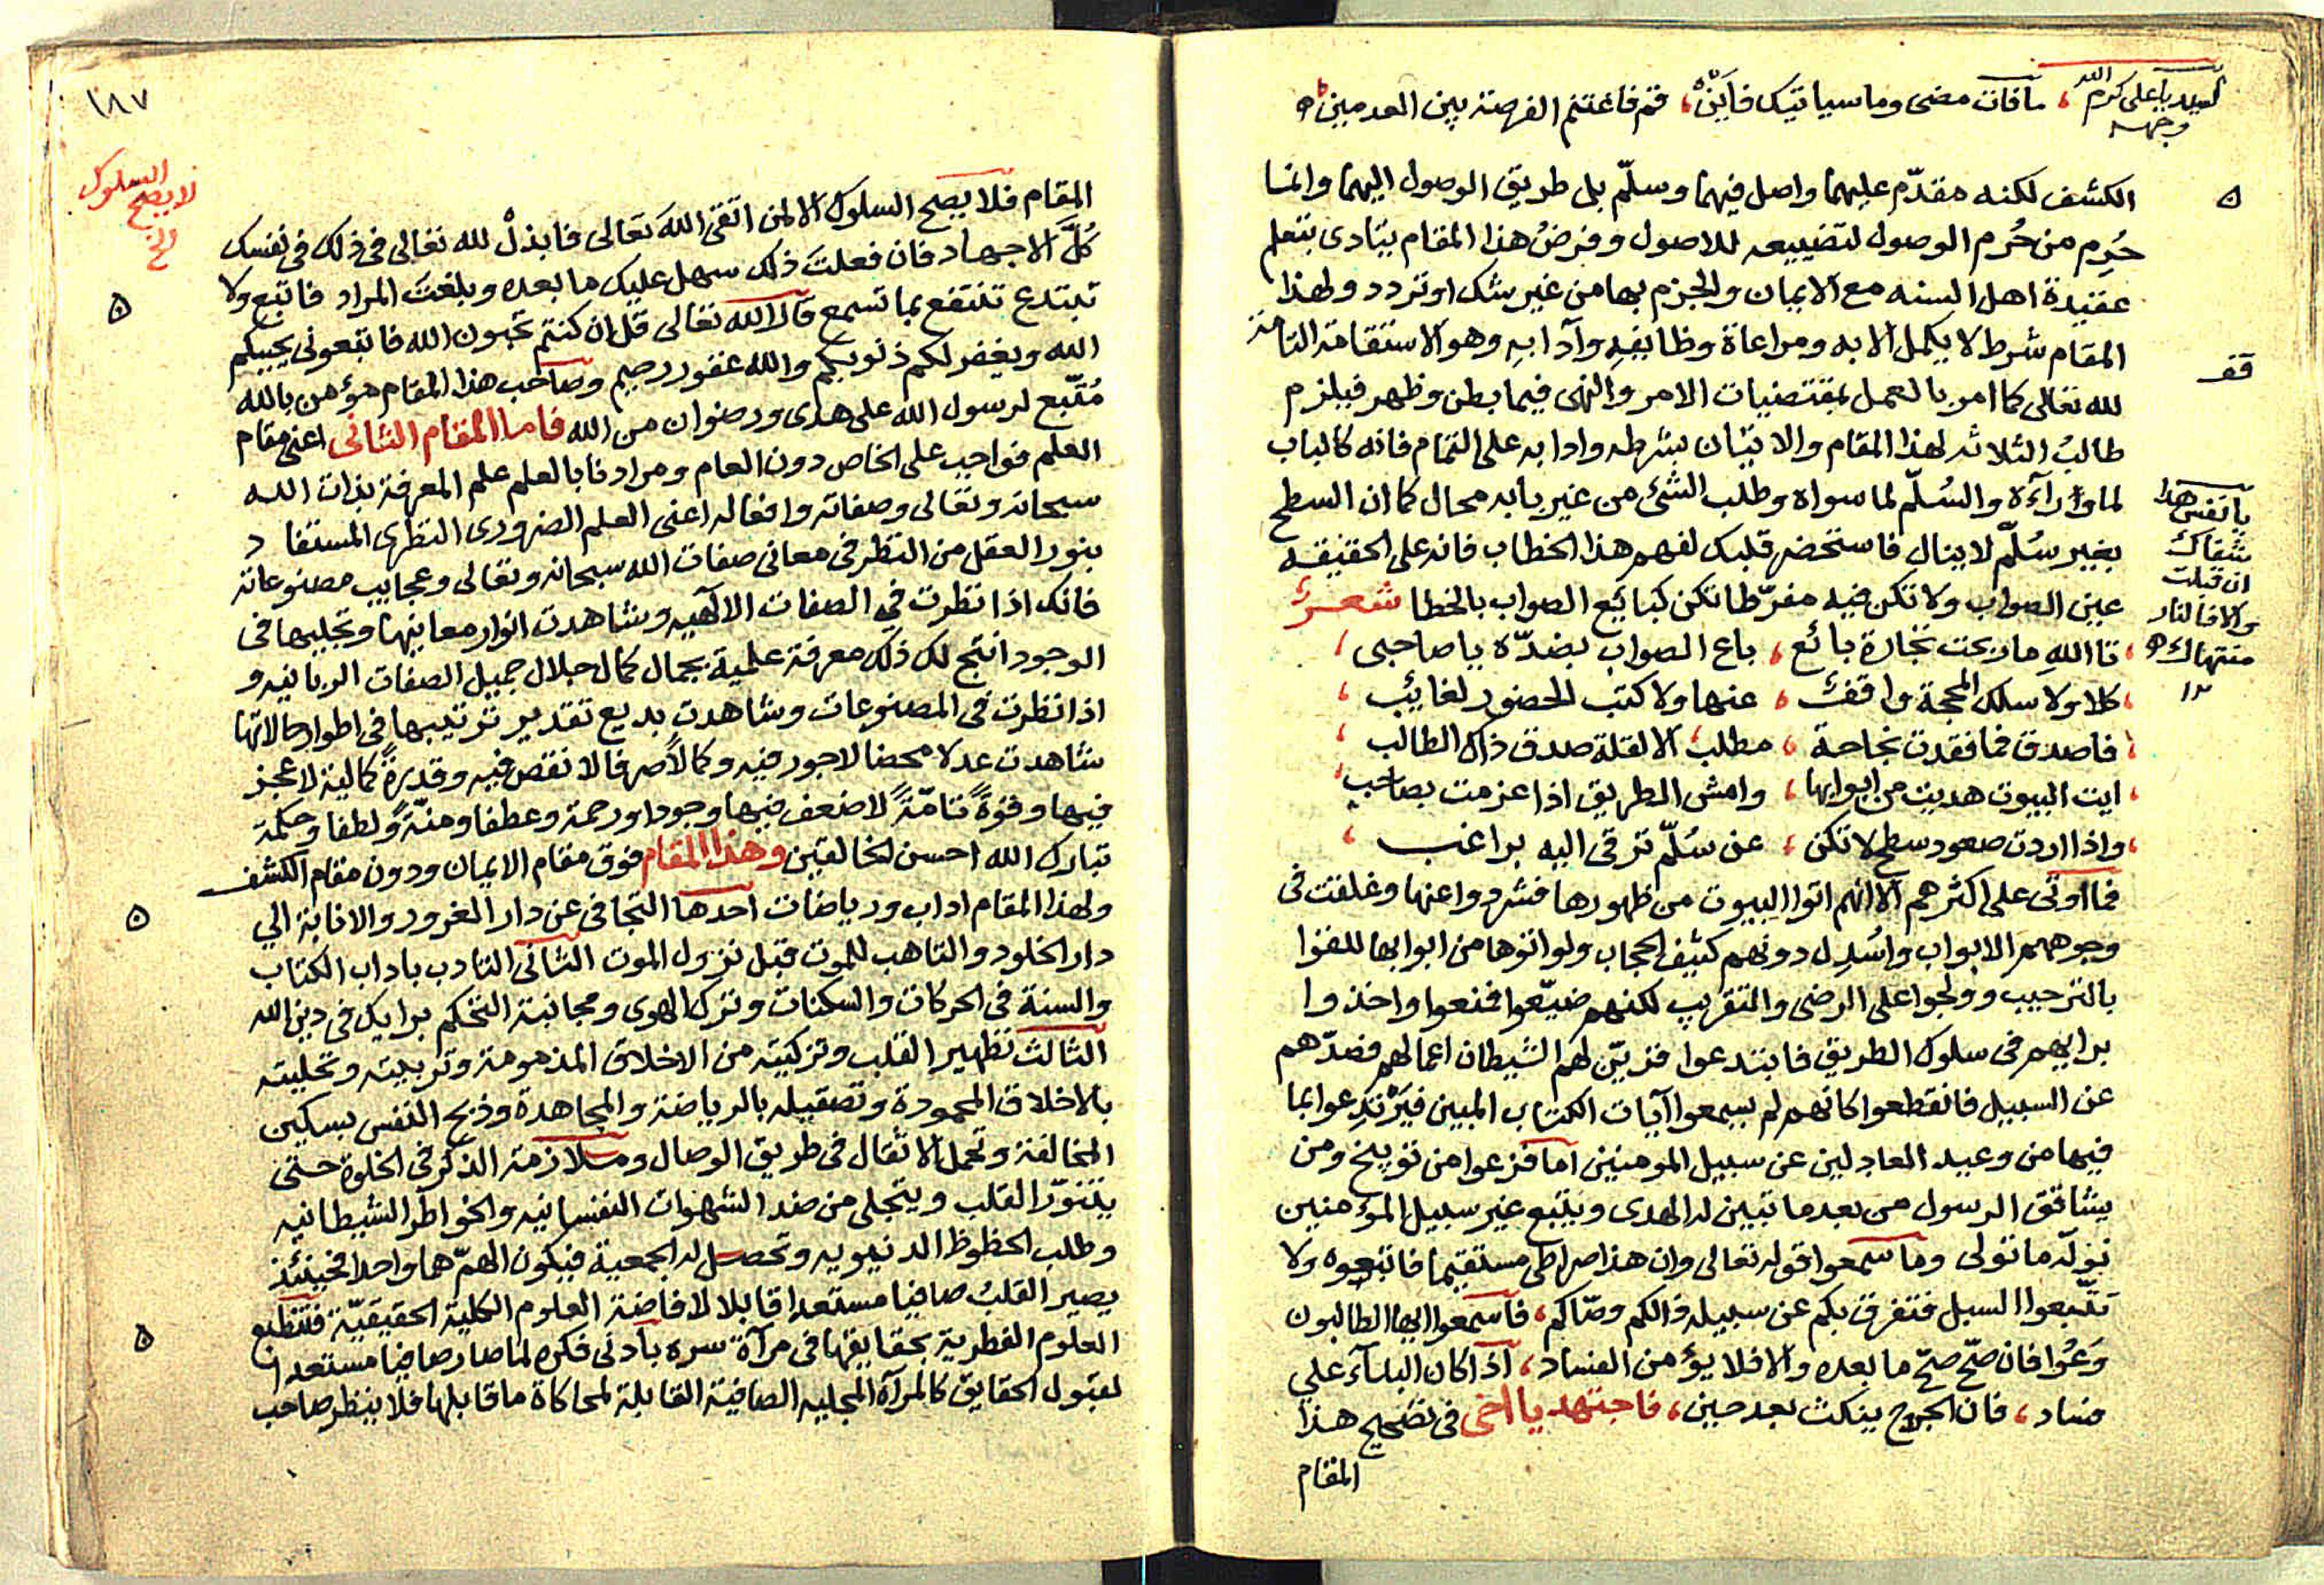 لسيدنا على كرم الله وجهه ، ما فات مضى وما سياتيك فاَيْنَ ، قم فاغتنم الفرصة بين العدمين
الكشف لكنه مقدّم عليهما واصل فيهما وسلّم بل طريق الوصول اليهما وانما
حُرِم من حُرم الوصول لتضييعه للاصول وفرضُ هذا المقام يتادى بتعلم
عقيدة اهل السنه مع الايمان والجزم بها من غير شك او تردد ولهذا
المقام شرط لا يكمل الا به ومراعاة وظايفِهِ وآدابهِ وهو الاستقامة التامة
لله تعالى كما امر بالعمل بمقتضيات الامر والنهى فيما بطن وظهر فيلزم
قف
طالبُ الثلاثه لهذا المقام والاتيان بشرطه وادابه على التمام فانه كالباب
لما وَرَآءَه والسُلّم لما سواه وطلب الشئ من غير بابه محال كما ان السطح
بغير سُلّم لا ينال فاستحضر قلبك لفهم هذا الخطاب فانه على الحقيقه
عين الصواب ولا تكن فيه مفرّطا تكن كبائع الصواب بالخطا شعر
يا نفس هذا
شقاك
ان قبلت
والا فالنار
منتهاك
١٢
تاالله ما ربحت تجارة بائع ، باع الصواب بضدّه يا صاحبى ،
كلا ولا سلك المحجة واقف ، عنها ولا كتب الحضور لغايب ،
فاصدق فما فقدت نجاحة ، مطلب الا لقلة صدق ذاك الطالب ،
ايت البيوت هديت من ابوابها ، وامش الطريق اذا عزمت بصاحب
واذا اردت صعود سطح لا تكن ، عن سُلّم ترقى اليه براغب ،
فما اوتى على اكثرهم الا انهم اتوا البيوت من ظهورها فشردوا عنها وغلقت فى
وجوههم الابواب واُسْدِل دونهم كثيف الحجاب ولو اتوها من ابوابها للقوا
بالترحيب وولجوا على الرضى والتقريب لكنهم ضيّعوا فمنعوا واخذوا
برايهم فى سلوك الطريق فابتدعوا فزيّن لهم الشيطان اعمالهم فصدّهم
عن السبيل فانقطعوا كانهم لم يسمعوا آيات الكتاب المبين فيَرْتدِعوا بما
فيها من وعيد العادلين عن سبيل المومنين اما فزعوا من توبيخ ومن
يشاقق الرسول من بعد ما تبين له الهدى ويتبع غير سبيل المؤمنين
نولّه ما تولى وما سمعوا قوله تعالى وان هذا صراطى مستقيما فاتبعوه ولا
تتّبعوا السبل فتفرق بكم عن سبيله ذالكم وصّاكم ، فاسمعوا ايها الطالبون
وَعُوا فان صحّ صحّ ما بعده والا فلا يؤمن الفساد ، اذا كان البناَء على
فساد ، فان الجرح ينكث بعد حين ، فاجتهد يا اخى فى تصحيح هذا
المقام
١٨٧
المقام فلا يصح السلوك الا لمن اتقى الله تعالى فابذلْ لله تعالى فى ذلك فى نفسك
لا يصح السلوك
الخ
كُلَّ الاجهاد فان فعلتَ ذلك سهل عليك ما بعده وبلغتَ المراد فاتبع ولا
تبتدع تنتفع بما تسمع قال الله تعالى قل ان كنتم تحبون الله فاتبعونى يحببكم
الله ويغفر لكم ذنوبكم والله غفور رحيم وصاحب هذا المقام مؤمن بالله
مُتّبع لرسول الله على هدى ورضوان من الله فاما المقام الثانى اعنى مقام
العلم فواجب على الخاص دون العام ومرادنا بالعلم علم المعرفة بذات الله
سبحانه وتعالى وصفاته وافعاله اعنى العلم الضرورى النظرى المستفاد
بنور العقل من النظر فى معانى صفات الله سبحانه وتعالى وعجايب مصنوعاته
فانك اذا نظرت فى الصفات الالهيه وشاهدت انوار معانيها وتجليها فى
الوجود انتج لك ذلك معرفة علمية بجمال كمال جلال جميل الصفات الربانيه و
اذا نظرت فى المصنوعات وشاهدت بديع تقدير ترتيبها فى اطوار حالاتها
شاهدت عدلا محضا لا جور فيه وكمالًا صرفا لا نقص فيه وقدرةً كمالية لا عجز
فيها وقوةً تامّةً لا ضعف فيها وجودا ورحمة وعطفا ومنّةً ولطفا وحكمة
تبارك الله احسن الخالقين وهذا المقام فوق مقام الايمان ودون مقام الكشف
ولهذا المقام اداب ورياضات احدها التجافى عن دار الغرور والانابة الى
دار الخلود والتاهب للموت قبل نزول الموت الثانى التادب باداب الكتاب
والسنة فى الحركات والسكنات وترك الهوى ومجانبة التحكم برايك فى دين الله
الثالث تطهير القلب وتزكيته من الاخلاق المذمومة وتربيته وتحليته
بالاخلاق المحمودة وتصقيله بالرياضة والمجاهدة وذبح النفس بسكين
المخالفة وتحمل الاثقال فى طريق الوصال وملازمة الذكر فى الخلوة حتى
يتنوّر القلب ويتجلى من صدا الشهوات النفسانيه والخواطر الشيطانيه
وطلب الحظوظ الدنيويه وتحصل له الجمعية فيكون الهمّ هما واحدا فحينئذ
يصير القلبُ صافيا مستعدا قابلا لافاضة العلوم الكلية الحقيقيّة فتنطبع
العلوم الفطرية بحقايقها فى مرآة سره بادنى فكره لما صار صافيا مستعدا
لقبول الحقايق كالمرآه المجليه الصافية القابلة لمحاكاة ما قابلها فلا ينظر صاحب